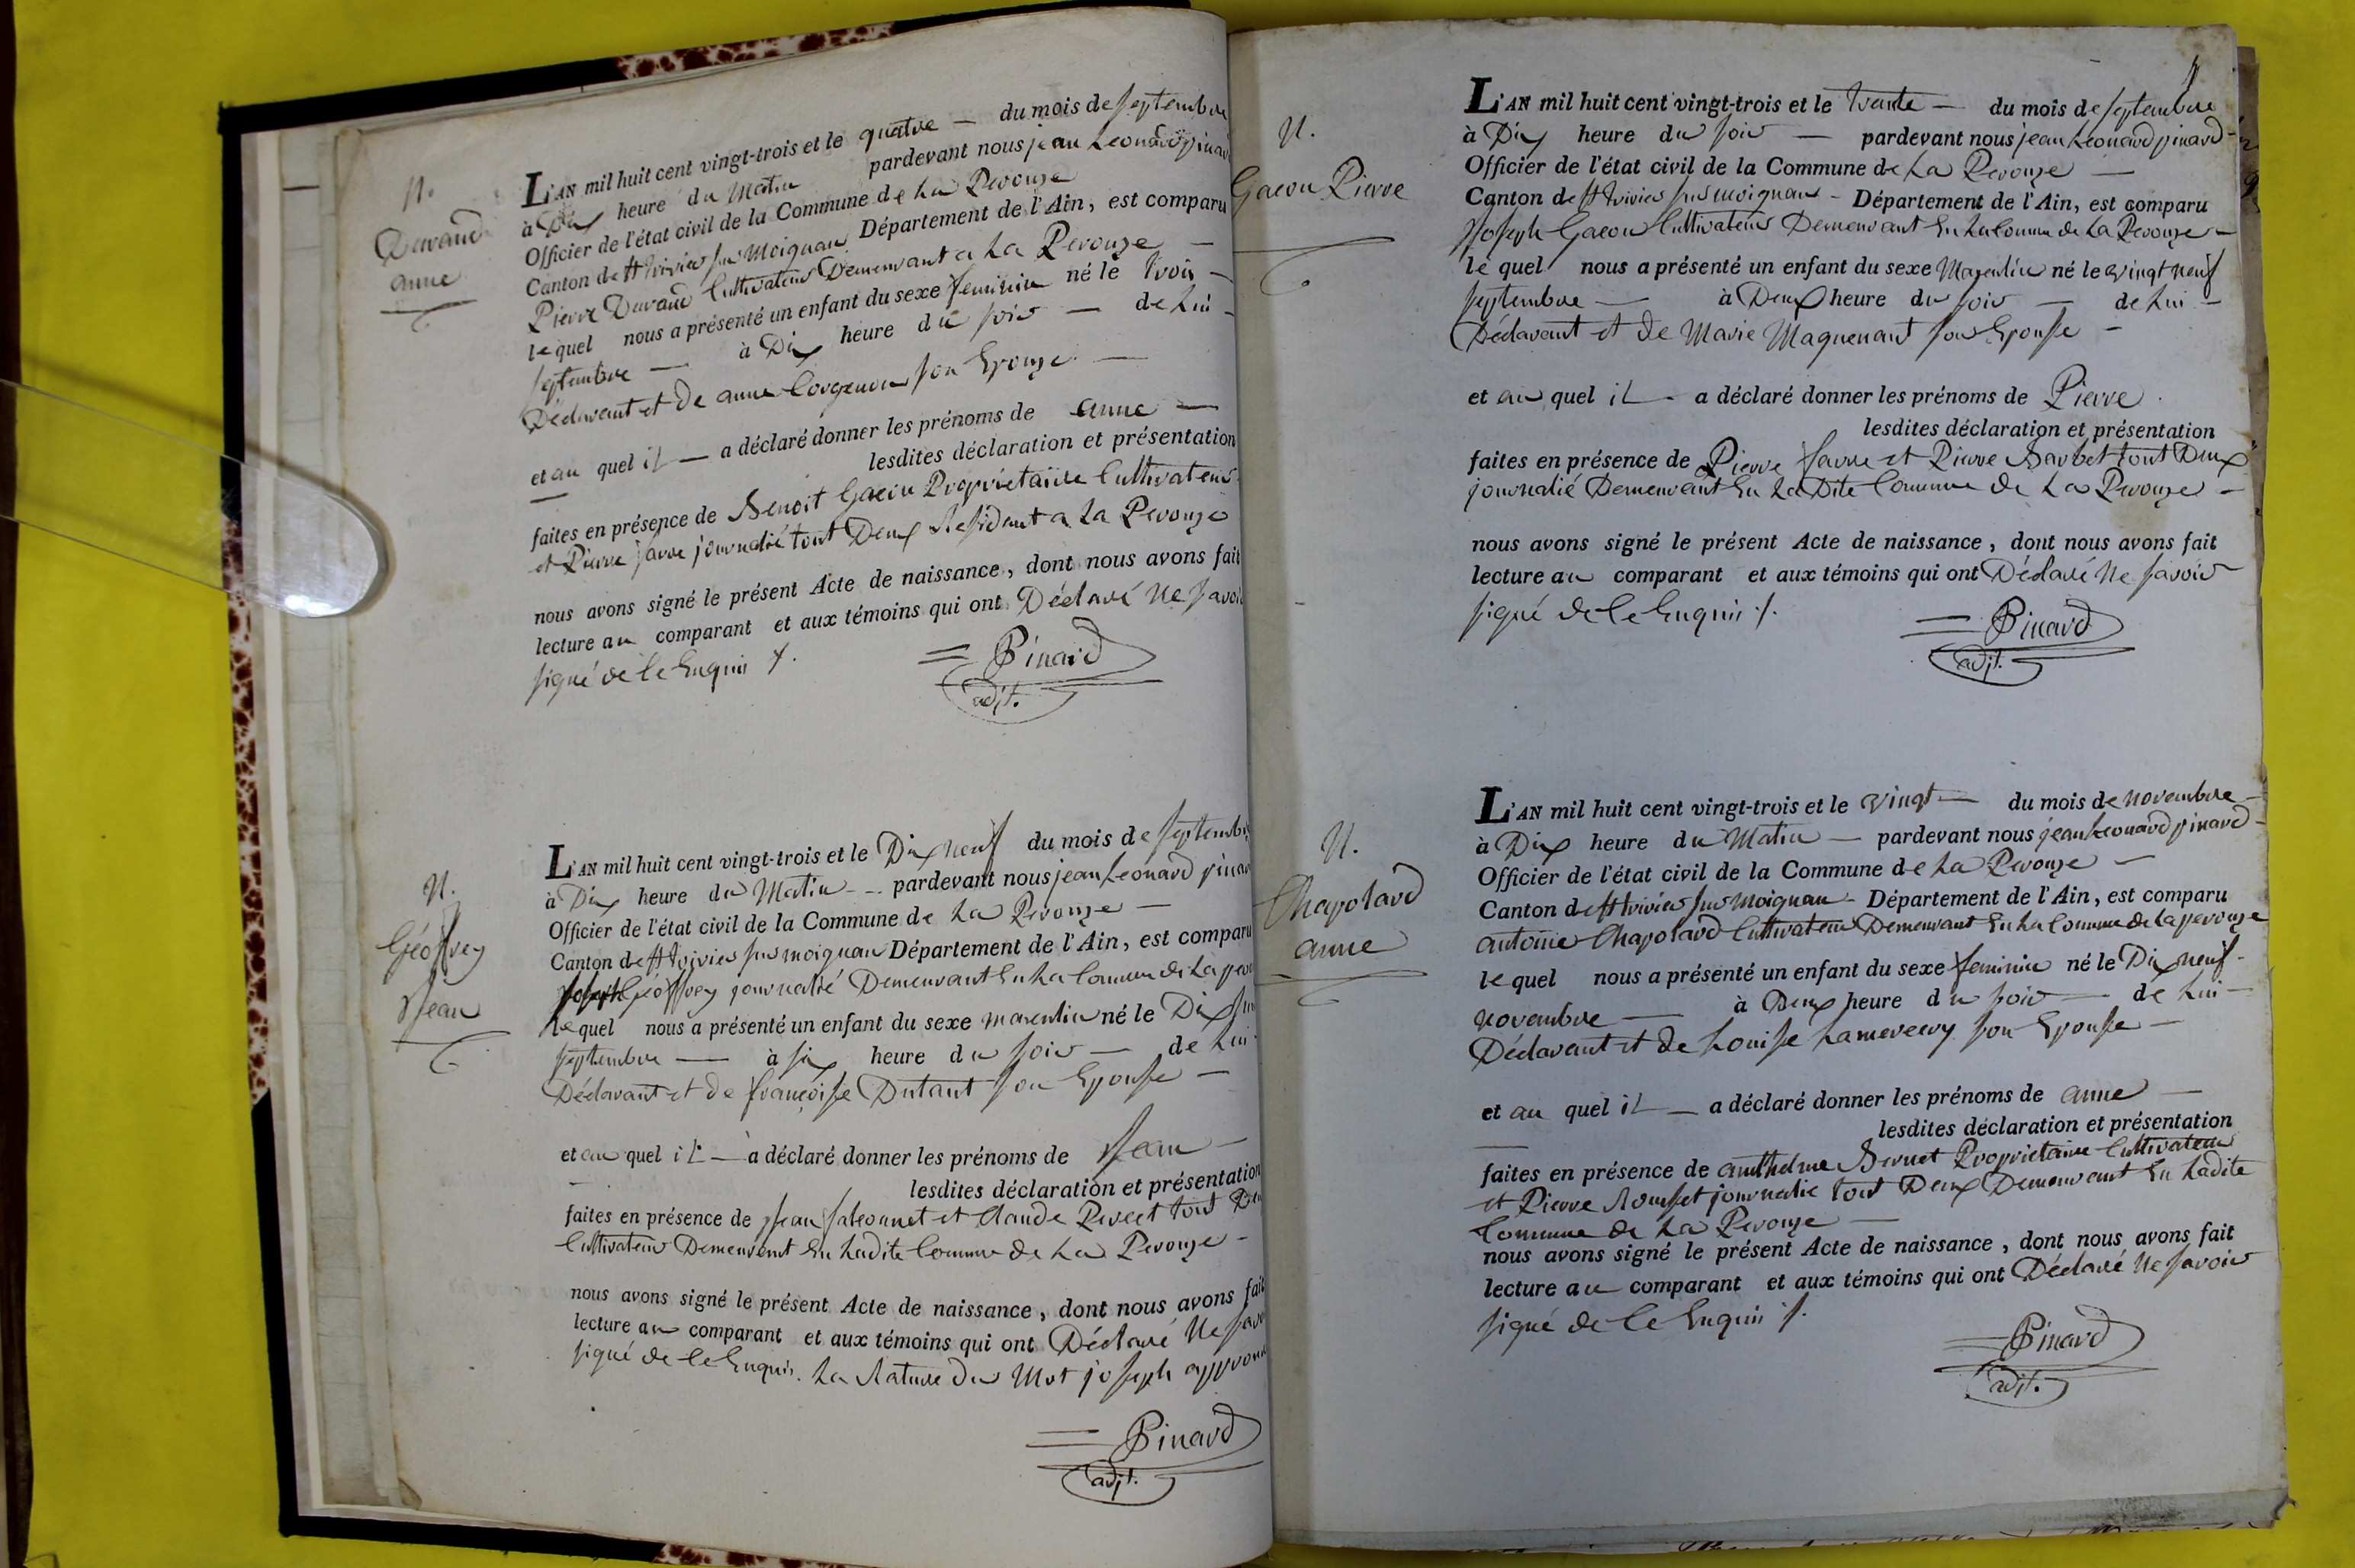 N.
Durand
anne
L'AN mil huit cent vingt-trois et le quatre — du mois de septembre
à Dix heure du Matin pardevant nous jean Leonard pinard
Officier de l'état civil de la Commune de La Perouze
Canton de St trivier sur Moignan Département de l'Ain, est comparu
Pierre Durand Cultivateur Demeurant a La Perouze —
le quel nous a présenté un enfant du sexe feminin né le trois —
septembre — à Dix heure du soir — de Lui —
Déclarant et de anne son Epouze —
et au quel il — a déclaré donner les prénoms de anne —
— lesdites déclaration et présentation
faites en présence de Benoit Gacon Propriétaire Cultivateur
et Pierre favre journalié tout Deux Residant a La Perouze
nous avons signé le présent Acte de naissance, dont nous avons fait
lecture au comparant et aux témoins qui ont Déclaré Ne savoir
signé de Ce Enquis
Pinard
adjt.
N.
Géoffrey
Jean
L'AN mil huit cent vingt-trois et le Dix neuf du mois de septembre
à Dix heure du Matin — pardevant nous jean Leonard pinard
Officier de l'état civil de la Commune de La Perouze —
Canton de St trivier sur moignan Département de l'Ain, est comparu
joseph Géoffrey journalié Demeurant En La Commune de La
le quel nous a présenté un enfant du sexe masculin né le Dix
septembre — à six heure du soir — de Lui
Déclarant et de françoisse Dutant son Epousse —
et au quel il — a déclaré donner les prénoms de Jean —
— lesdites déclaration et présentation
faites en présence de Jean et Claude Perret tout Deux
Cultivateur Demeurant En Ladite Commune de La Perouze —
nous avons signé le présent Acte de naissance, dont nous avons fait
lecture au comparant et aux témoins qui ont Déclaré Ne savoir
signé de Ce Enquis. La Rature du Mot joseph approuvé
Pinard
adjt.
N.
Gacon Pierre
L'AN mil huit cent vingt-trois et le trente — du mois de septembre
à Dix heure du soir — pardevant nous jean Leonard pinard
Officier de l'état civil de la Commune de La Perouze —
Canton de St trivier sur moignans — Département de l'Ain, est comparu
Joseph Gacon Cultivateur Demeurant En La Comune de La Perouze —
le quel nous a présenté un enfant du sexe Masculin né le vingt neuf
septembre — à Deux heure du soir — de Lui —
Déclarant et de Marie Maguenant son Epousse —
et au quel il — a déclaré donner les prénoms de Pierre.
lesdites déclaration et présentation
faites en présence de Pierre favre et Pierre Barbet tout Deux
journalié Demeurant En La Dite Commune de La Perouze —
nous avons signé le présent Acte de naissance, dont nous avons fait
lecture au comparant et aux témoins qui ont Déclaré Ne savoir
signé de Ce Enquis
Pinard
adjt.
N.
Chapolard
anne
L'AN mil huit cent vingt-trois et le vingt — du mois de novembre —
à Dix heure du Matin — pardevant nous jean Leonard pinard —
Officier de l'état civil de la Commune de La Perouze —
Canton de St trivier sur Moignan — Département de l'Ain, est comparu
antoine Chapolard Cultivateur Demeurant En La Comune de La perouze
le quel nous a présenté un enfant du sexe feminin né le Dix neuf —
novembre — à Deux heure du soir — de Lui —
Déclarant et de Louisse son Epousse —
et au quel il — a déclaré donner les prénoms de anne —
— lesdites déclaration et présentation
faites en présence de anthelme Bernet Proprietaire Cultivateur
et Pierre Rousset journalié tout Deux Demeurant En Ladite
Commune de La Perouze —
nous avons signé le présent Acte de naissance, dont nous avons fait
lecture au comparant et aux témoins qui ont Déclaré Ne savoir
signé de Ce Enquis
Pinard
adjt.